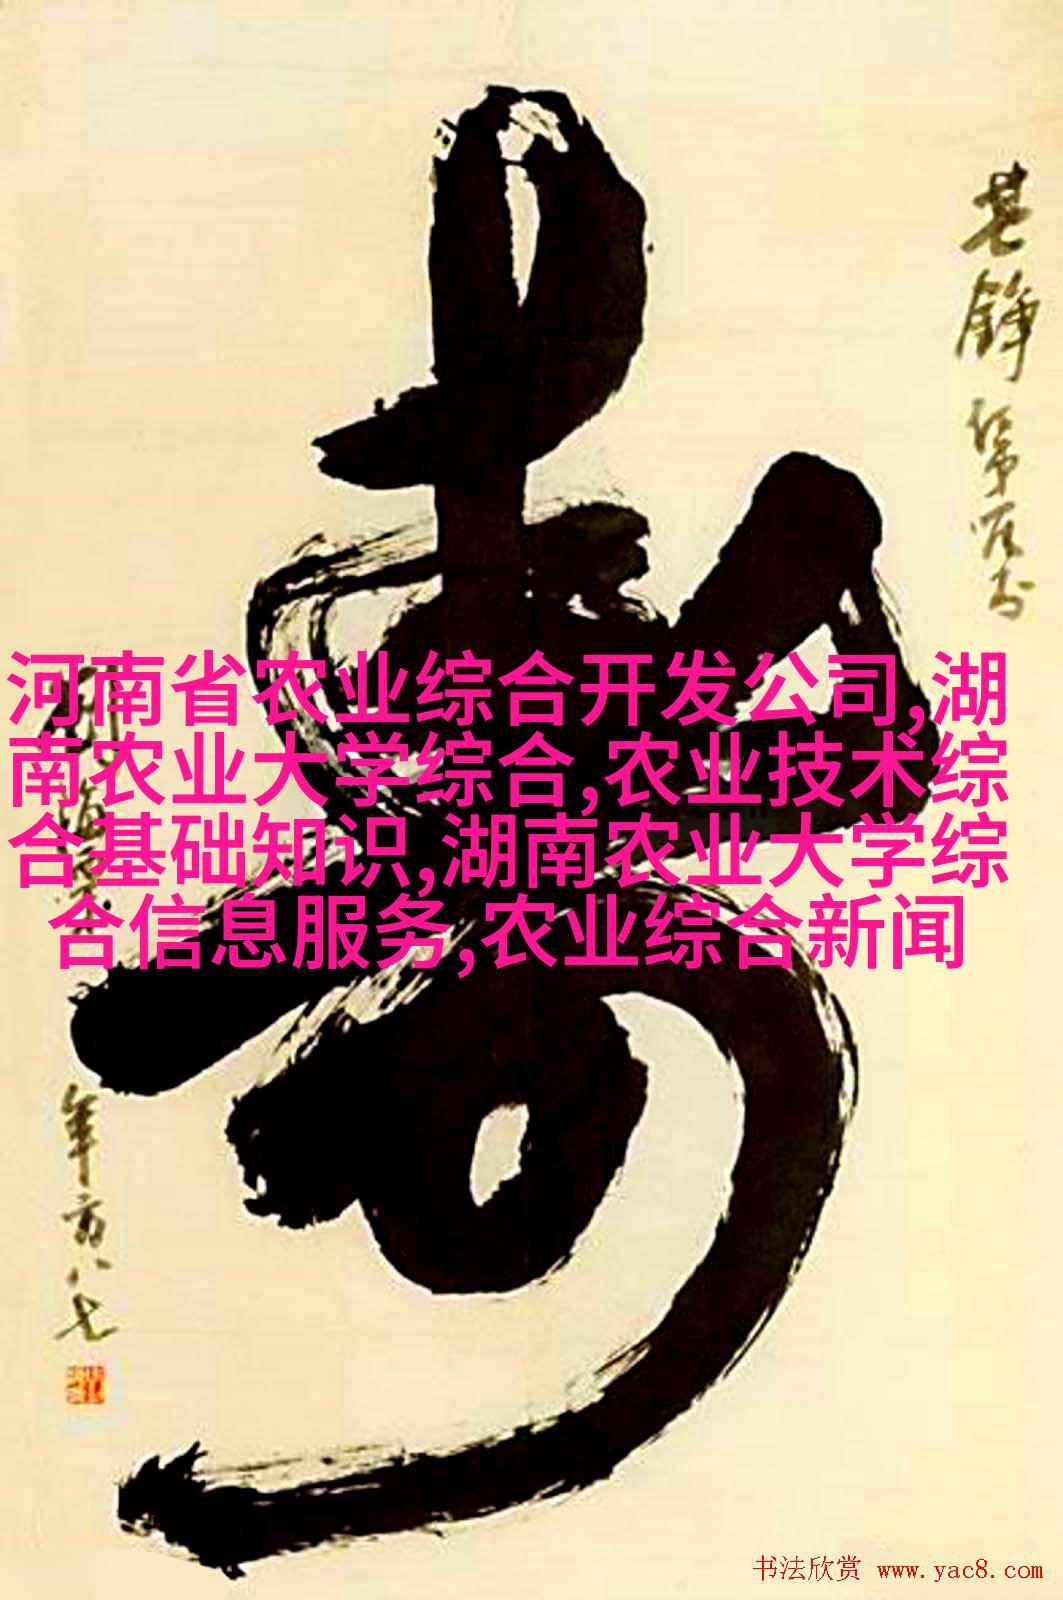 寿
其錚
年方八七
河南省农业综合开发公司,湖
南农业大学综合,农业技术综
合基础知识,湖南农业大学综
合信息服务,农业综合新闻
书法欣赏 www.yac8.com